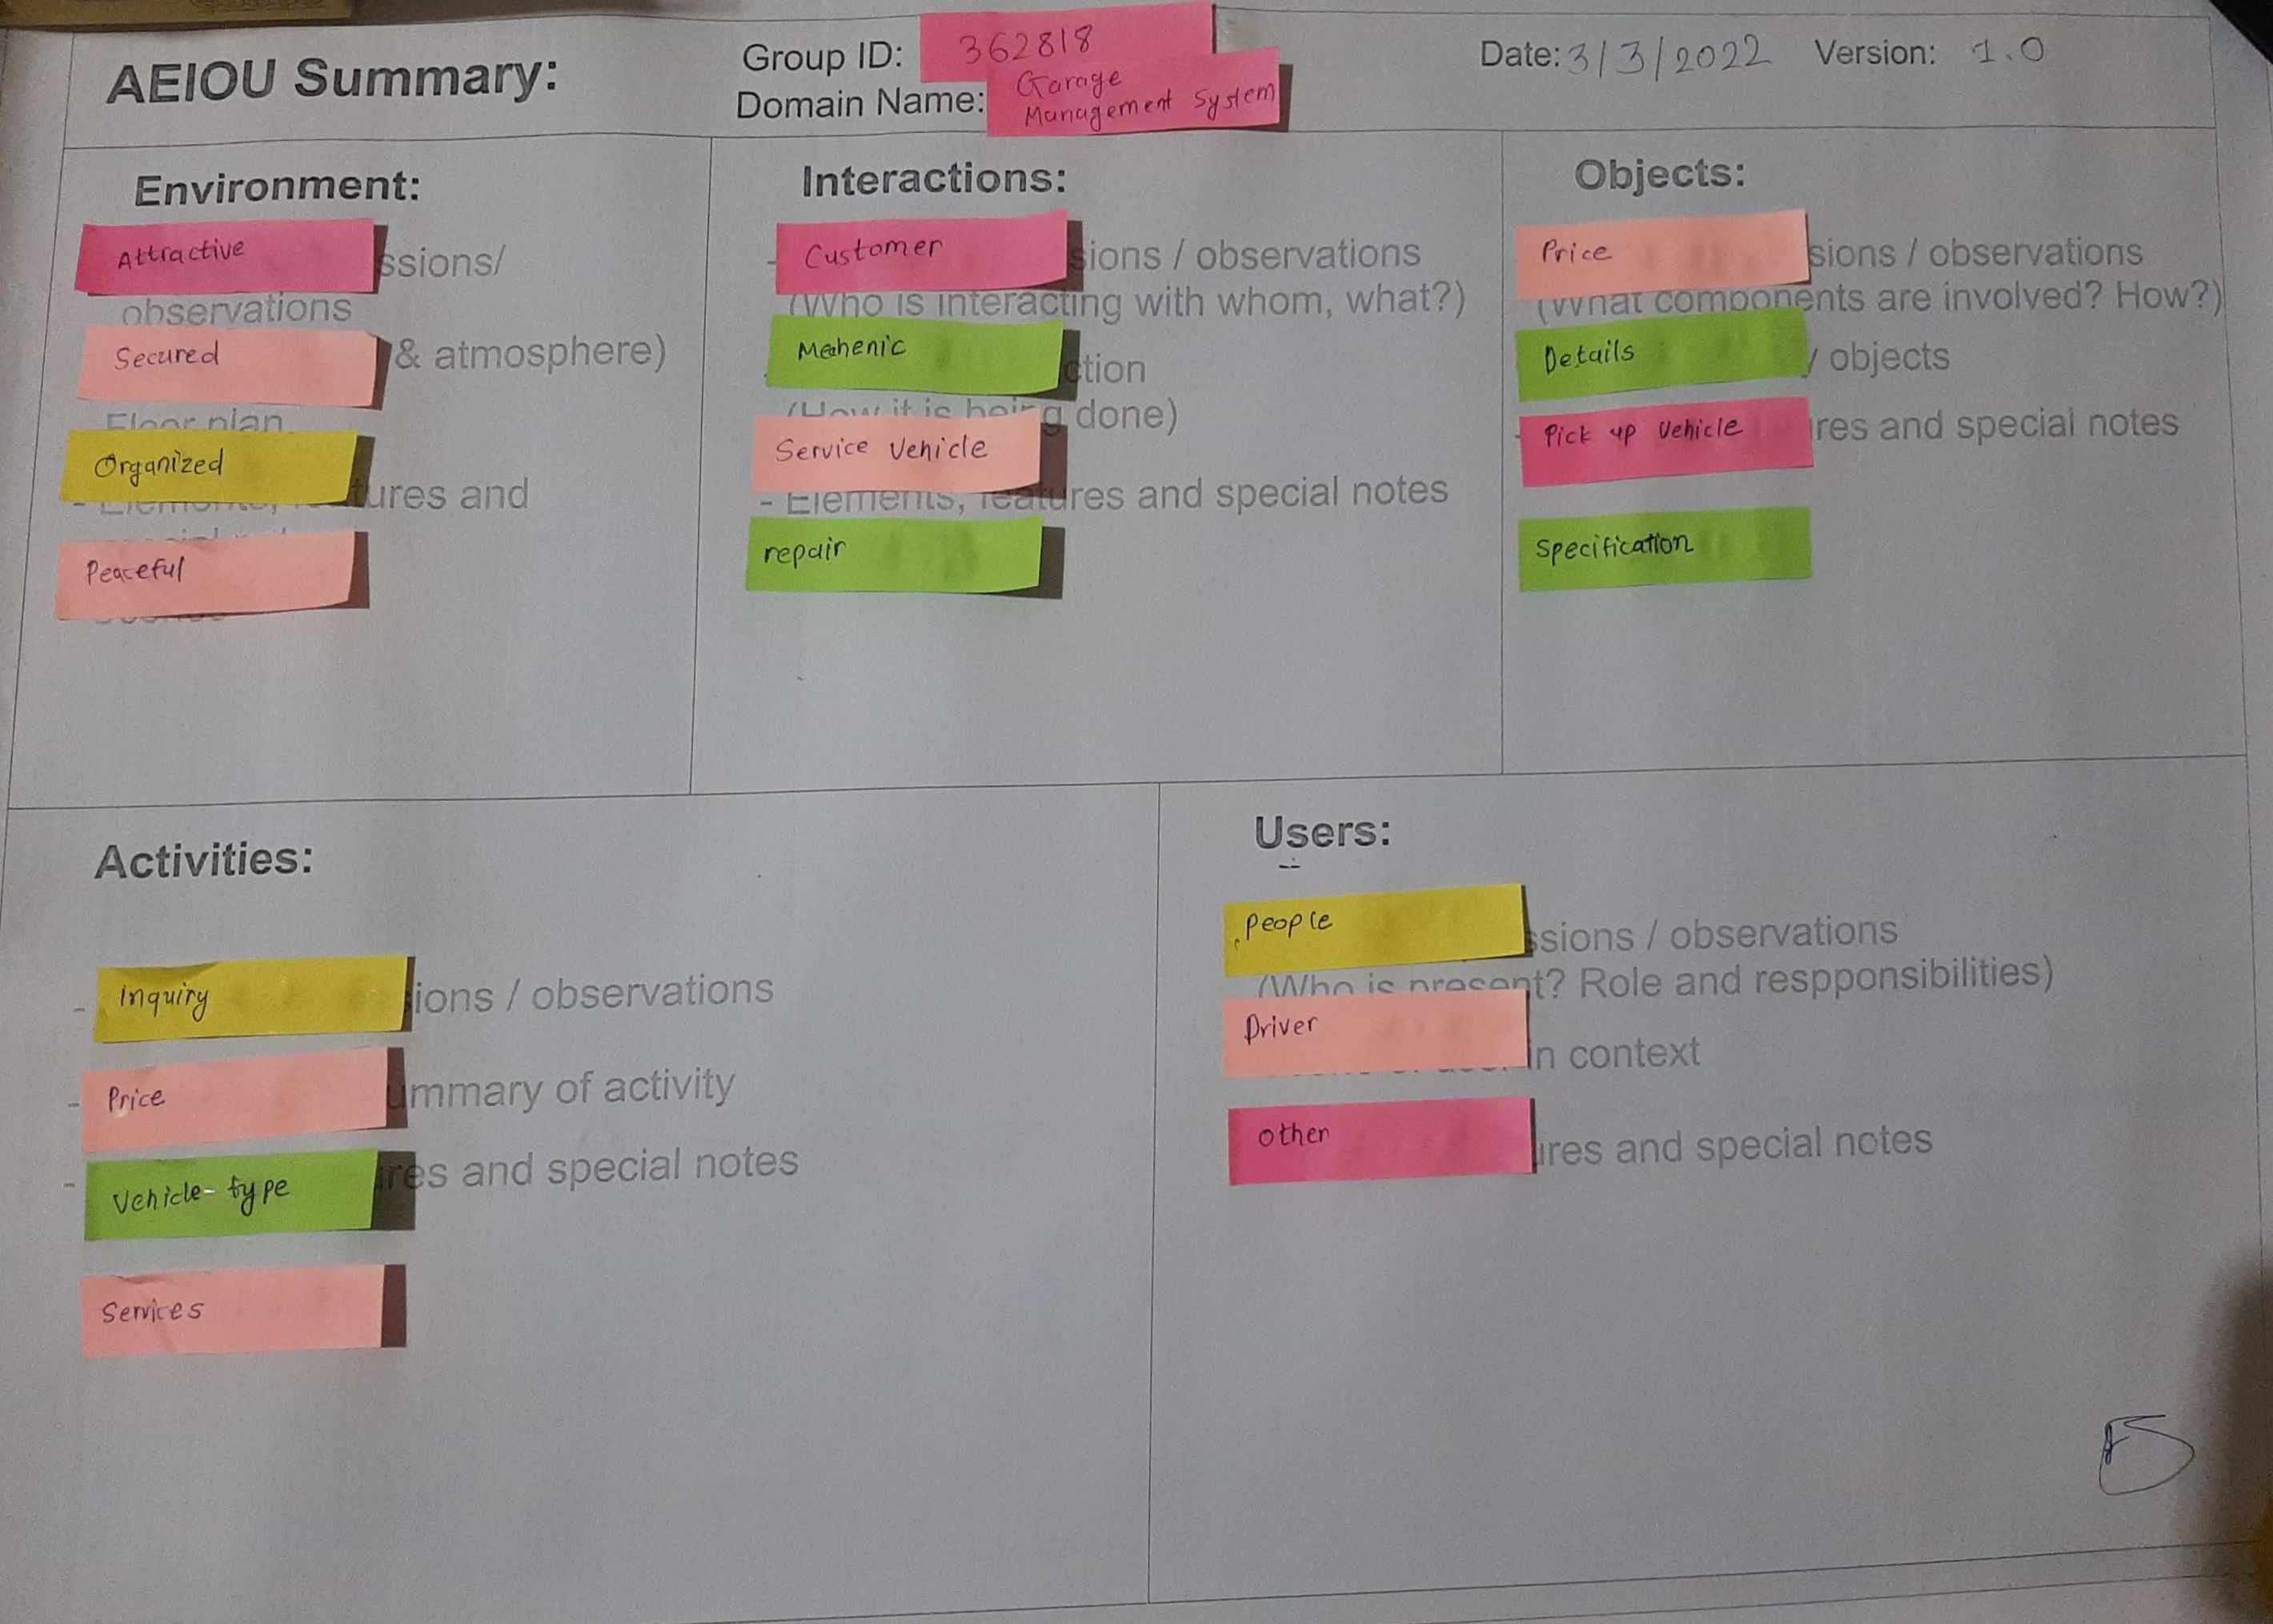 AEIOU Summary:
Group ID: 362818
Domain Name: Garage
Management System
Date: 3/3/2022 Version: 1.0
Environment:
Attractive
ssions/
observations
Secured & atmosphere)
Floor plan
Organized
- Elements, tures and
Peaceful
Interactions:
- Customer sions / observations
(Who is interacting with whom, what?)
Mechenic ction
(How it is being done)
Service Vehicle
- Elements, features and special notes
repair
Objects:
Price sions / observations
(What components are involved? How?)
Details y objects
- Pick up Vehicle res and special notes
Specification
Activities:
- Inquiry ions / observations
- Price ummary of activity
- Vehicle-type res and special notes
Services
Users:
People ssions / observations
(Who is present? Role and respponsibilities)
Driver in context
Other ures and special notes